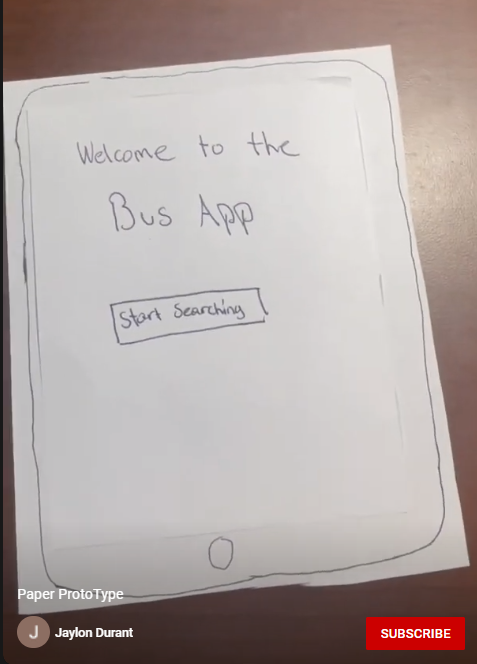 Welcome to the
Bus App
Start Searching
Paper ProtoType
J
Jaylon Durant
SUBSCRIBE